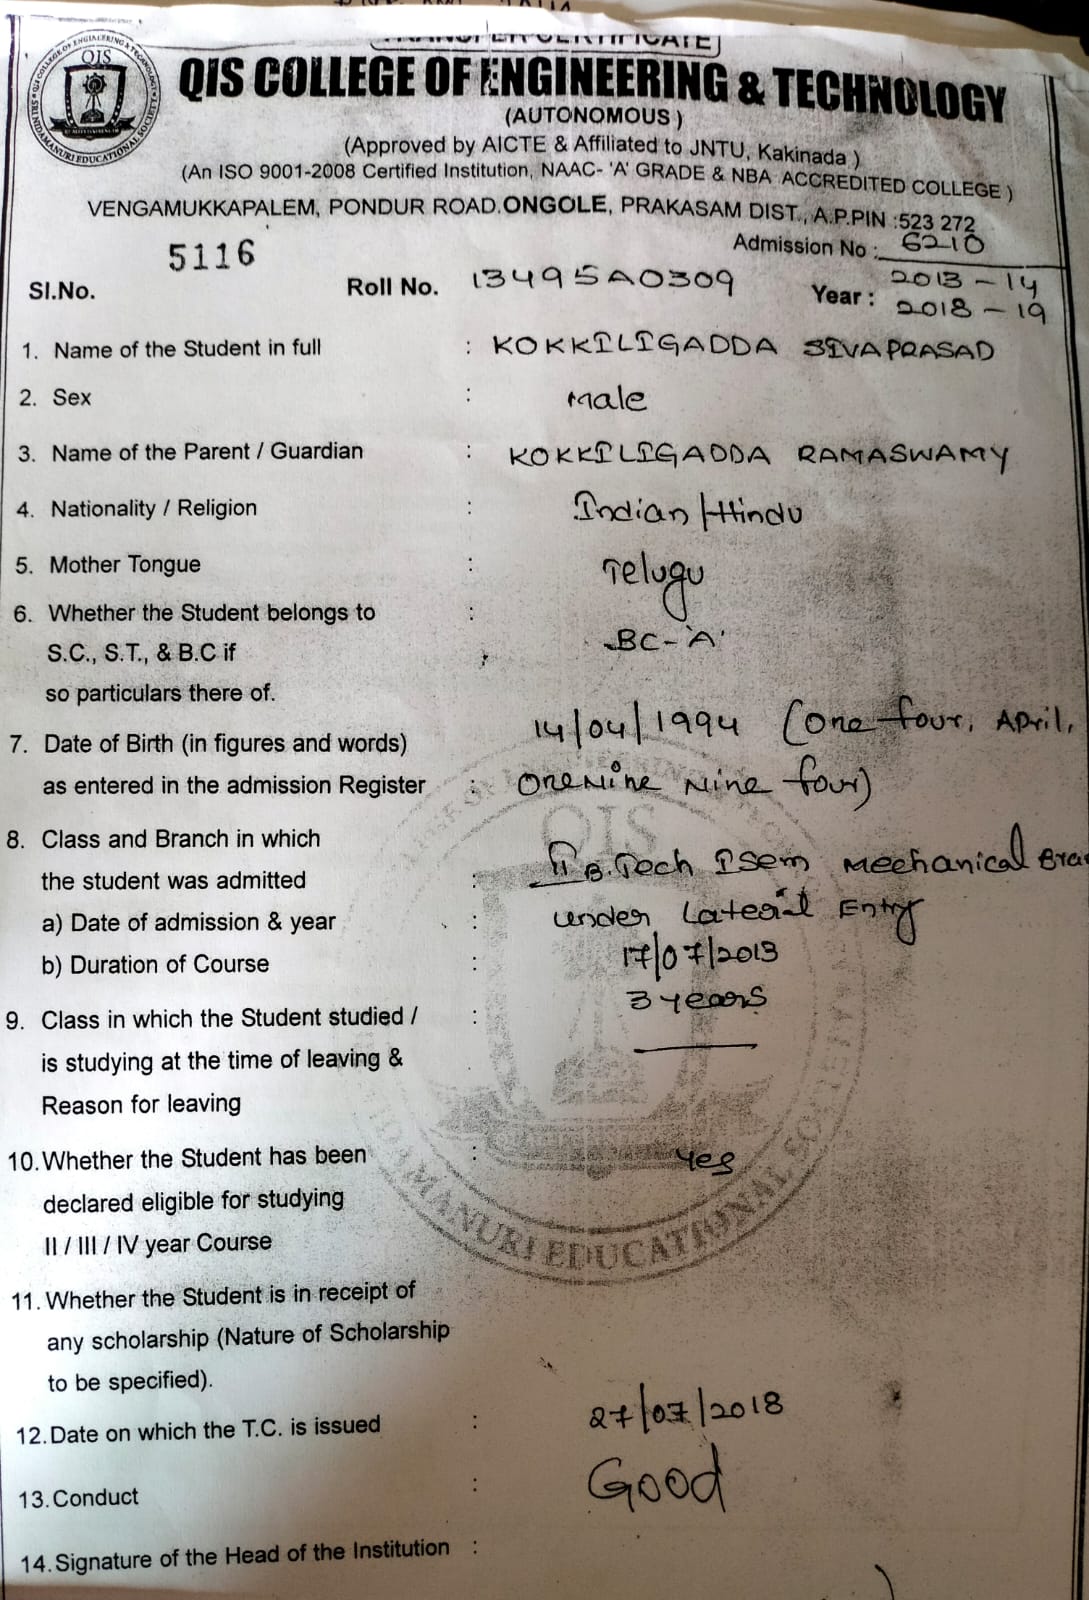 TRANSFER CERTIFICATE
QIS COLLEGE OF ENGINEERING & TECHNOLOGY
(AUTONOMOUS)
(Approved by AICTE & Affiliated to JNTU, Kakinada)
(An ISO 9001-2008 Certified Institution, NAAC- 'A' GRADE & NBA ACCREDITED COLLEGE)
VENGAMUKKAPALEM, PONDUR ROAD.ONGOLE, PRAKASAM DIST., A.P.PIN :523 272
5116 Admission No : 6210
SI.No. Roll No. 13495A0309 Year : 2013-14
2018-19
1. Name of the Student in full : KOKKILIGADDA SIVAPRASAD
2. Sex : Male
3. Name of the Parent / Guardian : KOKKILIGADDA RAMASWAMY
4. Nationality / Religion : Indian/Hindu
5. Mother Tongue : Telugu
6. Whether the Student belongs to :
S.C., S.T., & B.C if : BC-'A'
so particulars there of.
7. Date of Birth (in figures and words) 14/04/1994 (One four, April,
as entered in the admission Register : one Nine Nine four)
8. Class and Branch in which
the student was admitted : II B.Tech I sem Mechanical Bra
a) Date of admission & year : under Laterial Entry
b) Duration of Course : 17/07/2013
3 years
9. Class in which the Student studied / :
is studying at the time of leaving &
Reason for leaving
10. Whether the Student has been : Yes
declared eligible for studying
II / III / IV year Course
11. Whether the Student is in receipt of
any scholarship (Nature of Scholarship
to be specified).
12. Date on which the T.C. is issued : 27/07/2018
13. Conduct : Good
14. Signature of the Head of the Institution :